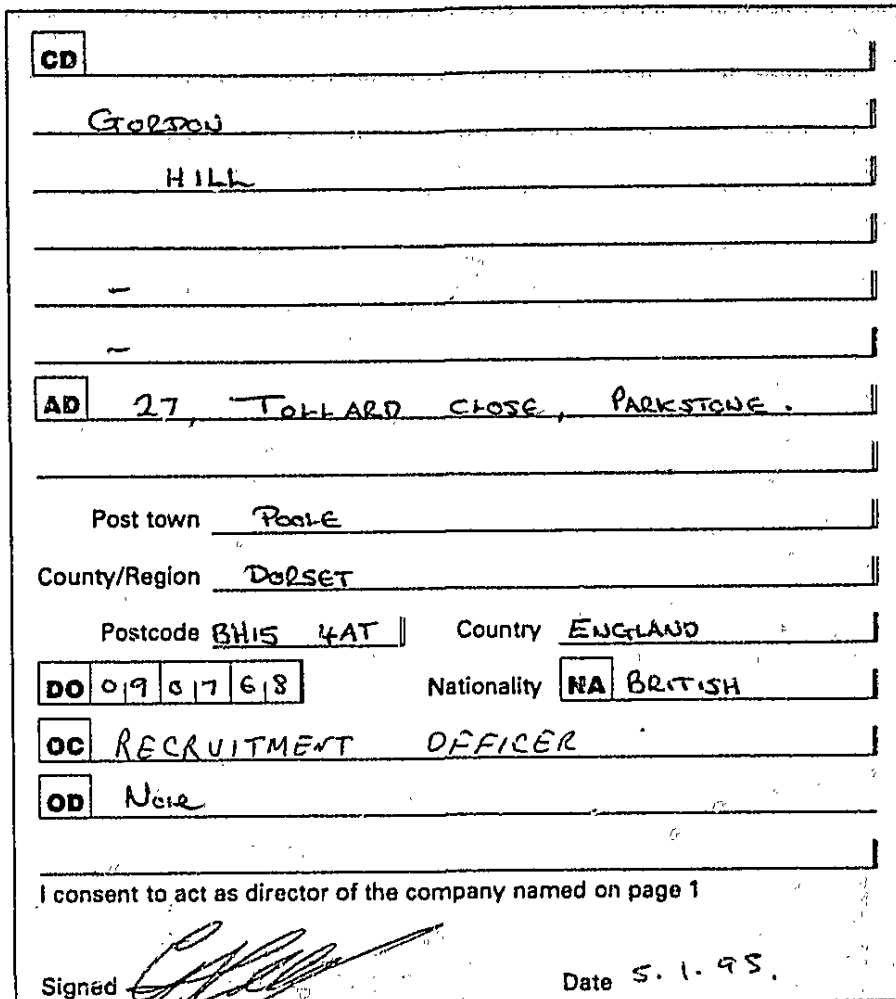 CD
GORDON
HILL
–
~
AD 27, TOLLARD CLOSE, PARKSTONE.
Post town POOLE
County/Region DORSET
Postcode BH15 4AT Country ENGLAND
DO 09 07 68 Nationality NA BRITISH
OC RECRUITMENT OFFICER
OD None
I consent to act as director of the company named on page 1
Signed Date 5.1.95.